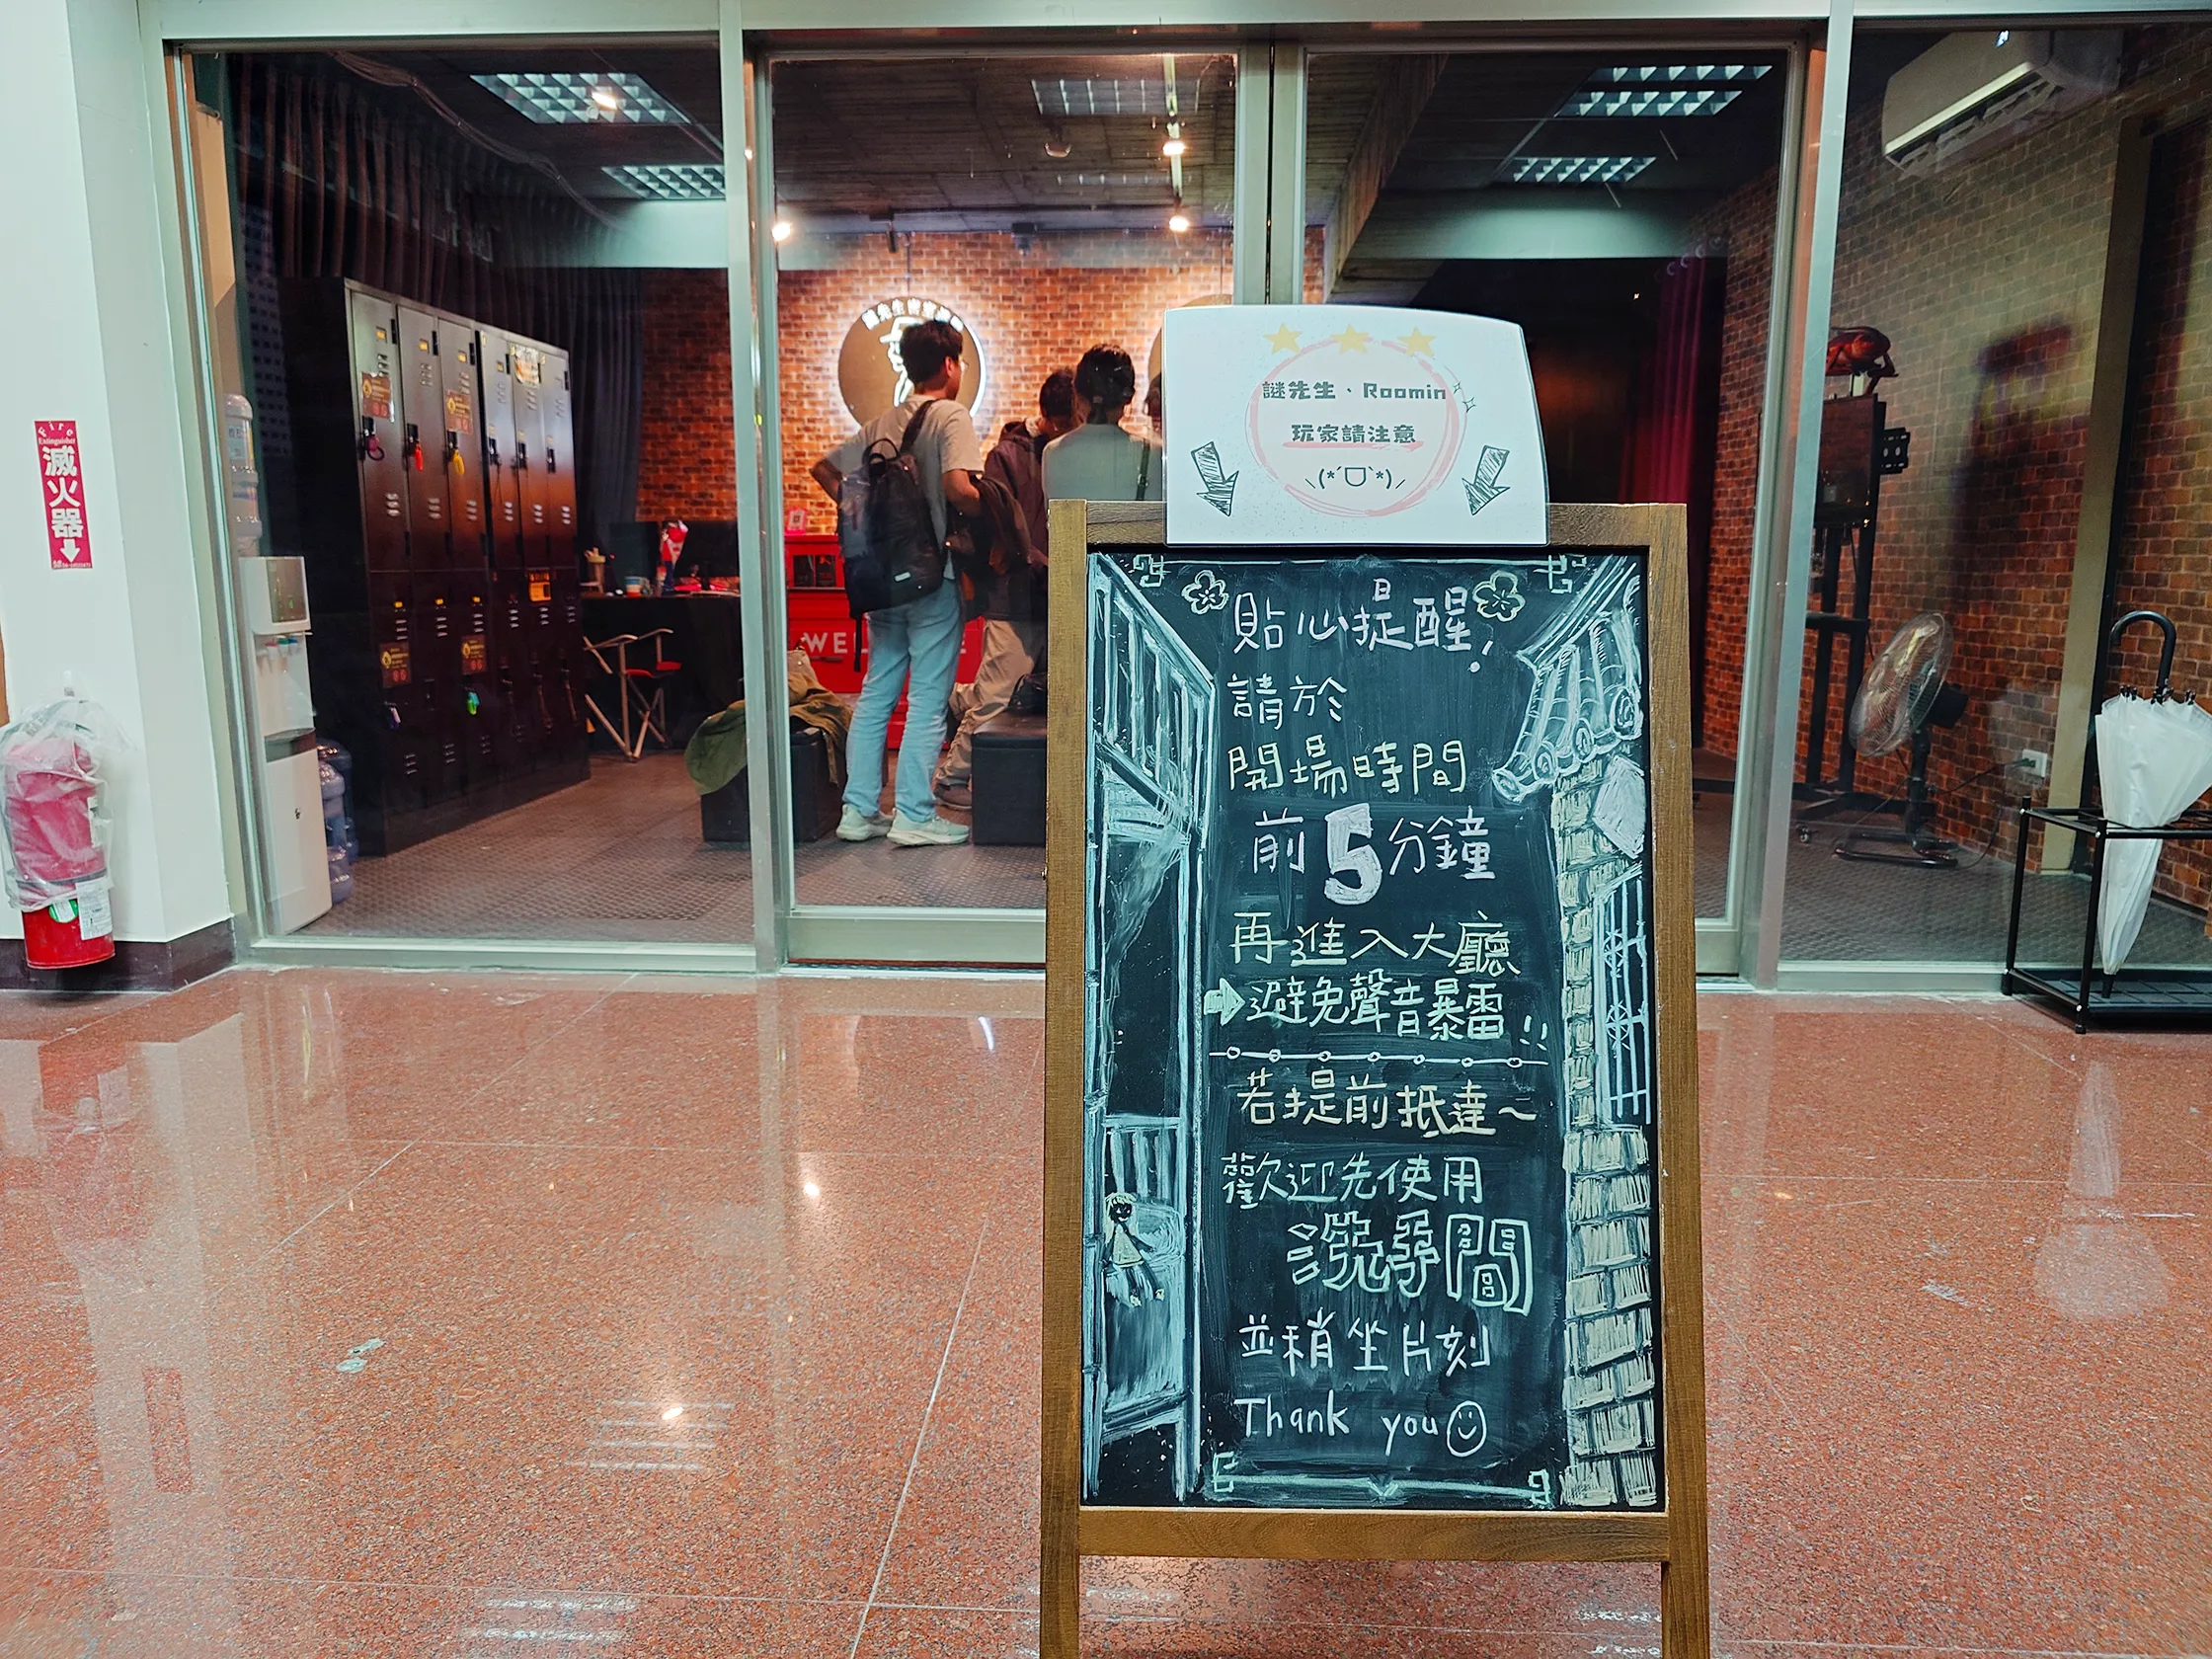 謎先生、Roomin
玩家請注意
(*ˊᗜˋ*)
貼心提醒!
請於
開場時間
前5分鐘
再進入大廳
➡避免聲音暴雷!!
若提前抵達~
歡迎先使用
洗手間
並稍坐片刻
Thank you☺
Fire
Extinguisher
滅火器
WEL
E